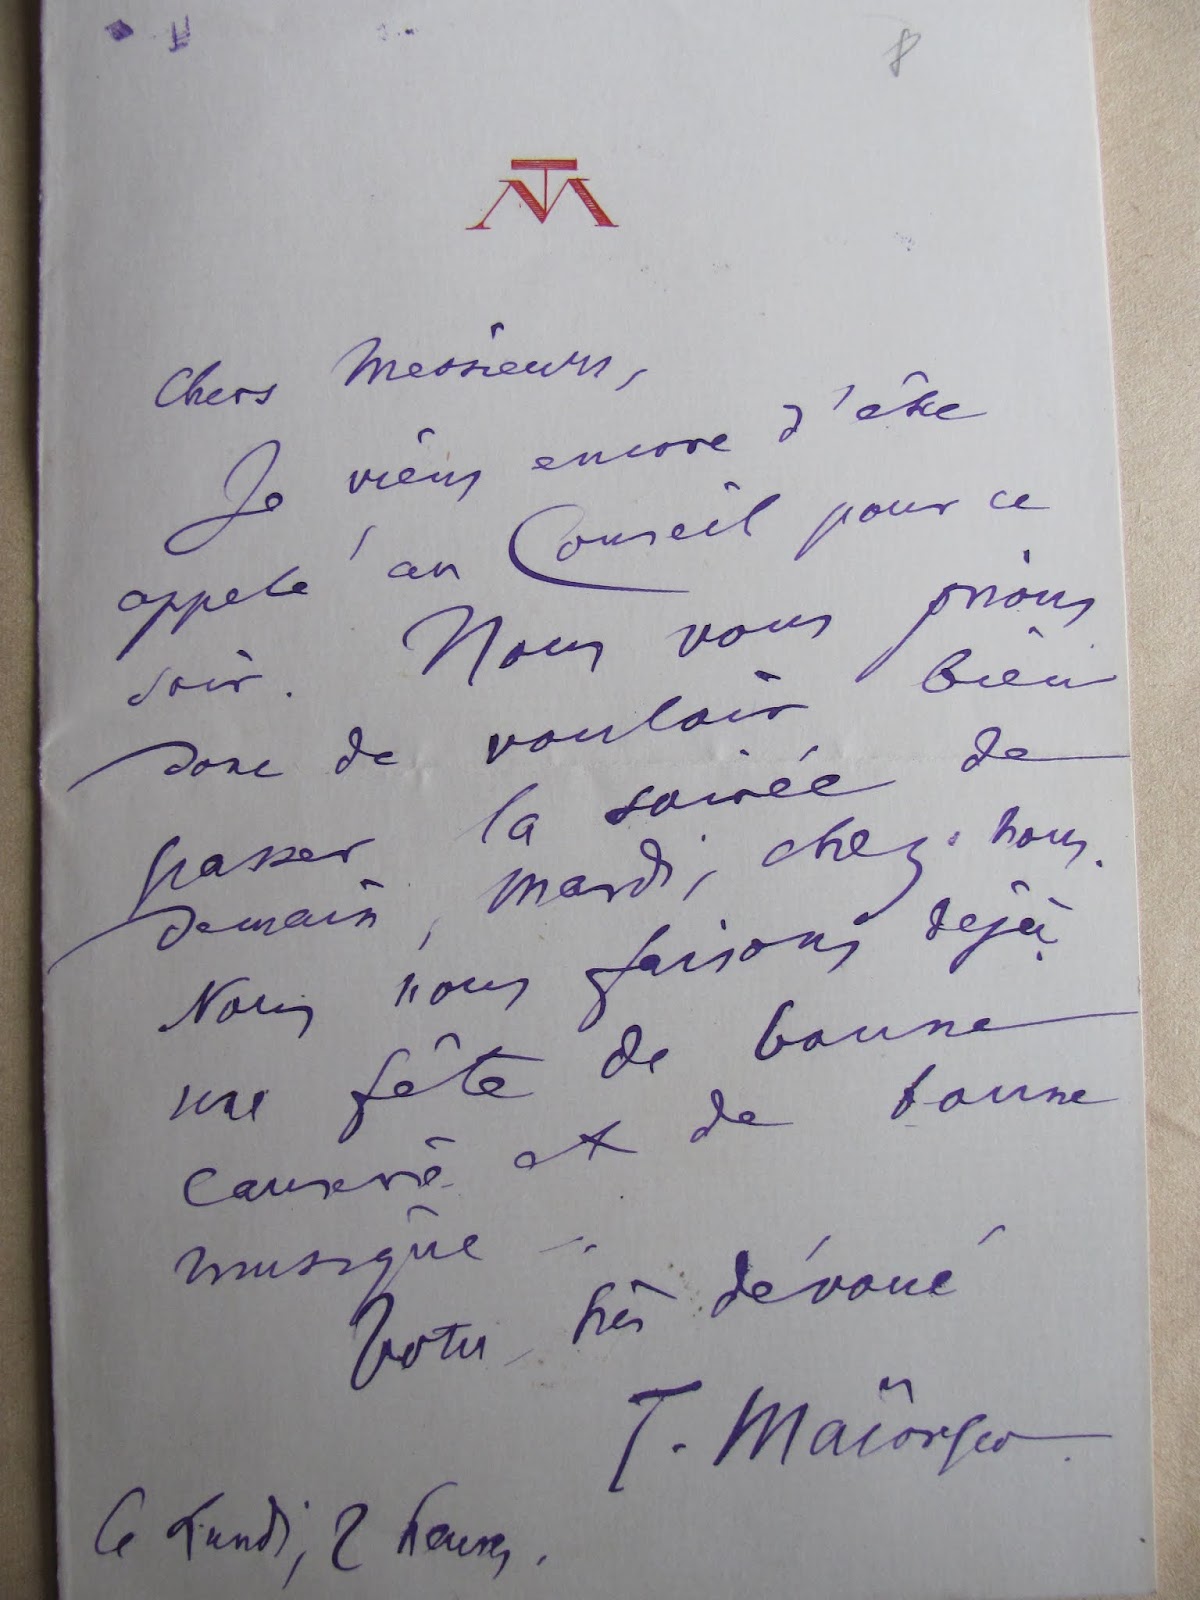 8
TM
Chers Messieurs,
Je viens encore d'être
appelé au Conseil pour ce
soir. Nous vous prions
donc de vouloir bien
passer la soirée de
demain, mardi, chez-nous.
Nous nous faisons déjà
une fête de bonne
causerie et de bonne
musique.
Votre très dévoué
T. Maïoresco.
Ce Lundi, 2 heures.